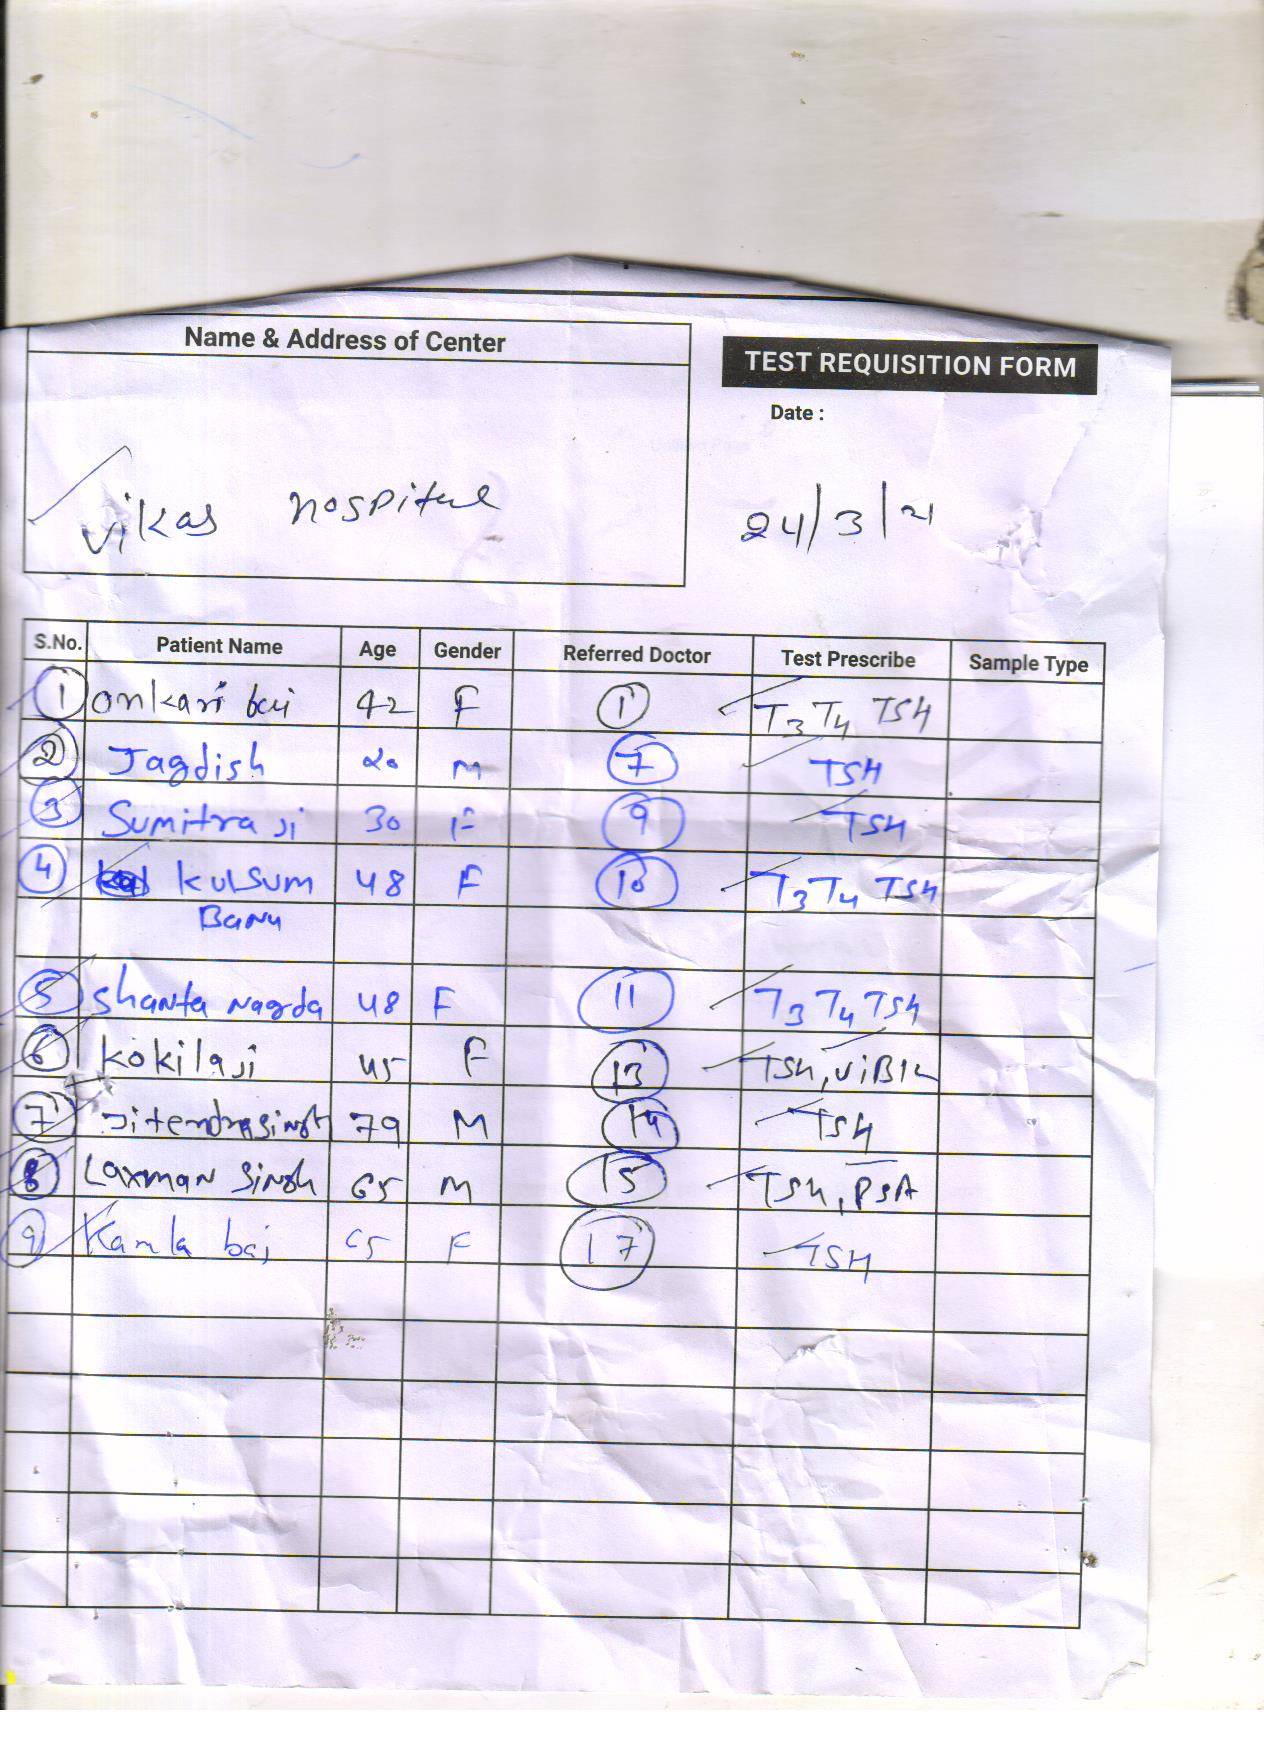 Name & Address of Center
TEST REQUISITION FORM
Date :
Vikas Hospital
24/3/21
S.No. Patient Name Age Gender Referred Doctor Test Prescribe Sample Type
1 onkari bai 42 F 1 T3 T4 TSH
2 Jagdish 20 M 7 TSH
3 Sumitra ji 30 F 9 TSH
4 kulsum 48 F 10 T3 T4 TSH
Banu
5 Shanta Nagda 48 F 11 T3 T4 TSH
6 kokila ji 45 F 13 TSH, ViB12
7 Jitendra Singh 79 M 14 TSH
8 Laxman Singh 65 M 15 TSH, PSA
9 Kamla bai 65 F 17 TSH